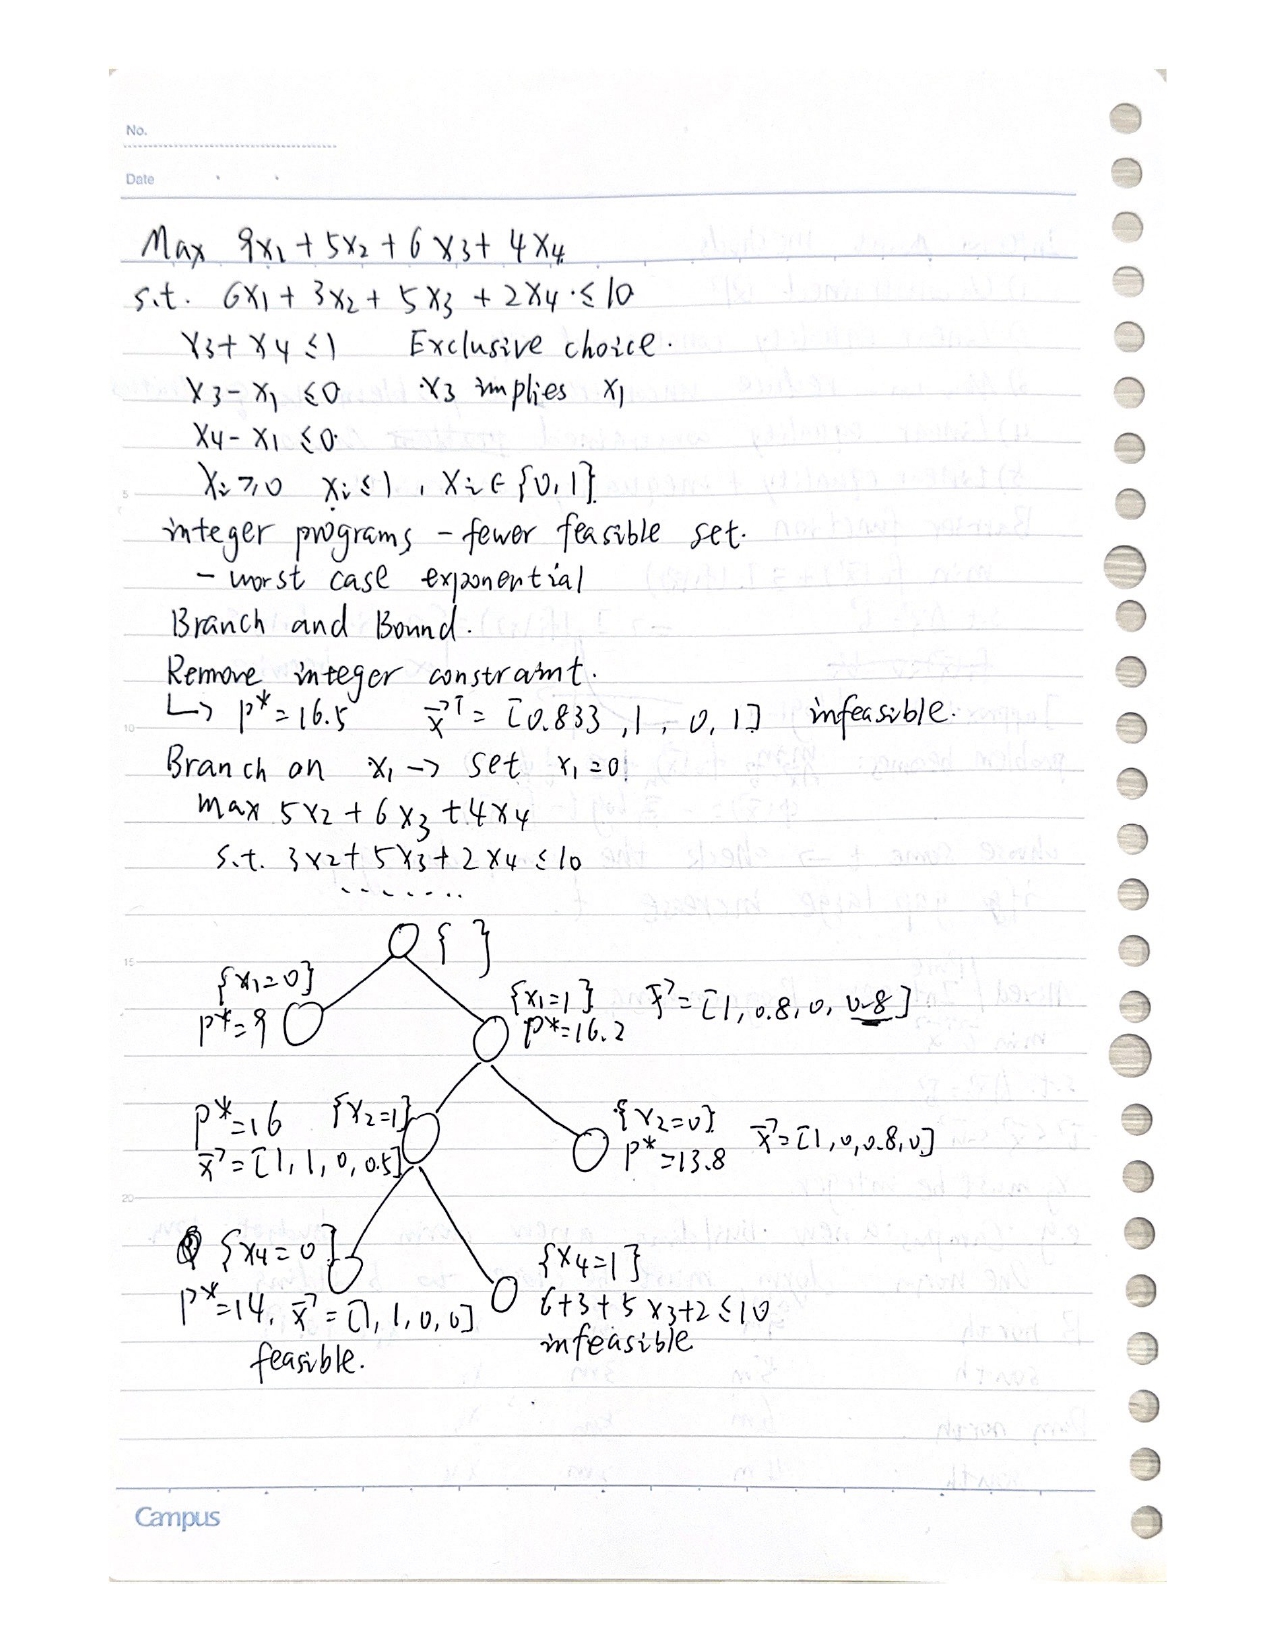 No.
Date
Max 9x₁ + 5x₂ + 6x₃ + 4x₄
s.t. 6x₁ + 3x₂ + 5x₃ + 2x₄ ≤ 10
x₃ + x₄ ≤ 1 Exclusive choice.
x₃ - x₁ ≤ 0 x₃ implies x₁
x₄ - x₁ ≤ 0
xᵢ ≥ 0 xᵢ ≤ 1, xᵢ ∈ {0, 1}
5
integer programs - fewer feasible set.
- worst case exponential
Branch and Bound.
Remove integer constraint.
↳ p* = 16.5 x⃗ᵀ = [0.833, 1, 0, 1] infeasible.
10
Branch on x₁ → set x₁ = 0
max 5x₂ + 6x₃ + 4x₄
s.t. 3x₂ + 5x₃ + 2x₄ ≤ 10
.......
{ }
15
{x₁=0}
p* = 9
{x₁=1} x⃗ = [1, 0.8, 0, 0.8]
p* = 16.2
p* = 16 {x₂=1}
x⃗ = [1, 1, 0, 0.5]
{x₂=0} x⃗ = [1, 0, 0.8, 0]
p* = 13.8
20
{x₄=0}
p* = 14, x⃗ = [1, 1, 0, 0]
feasible.
{x₄=1}
6+3+5x₃+2 ≤ 10
infeasible
Campus